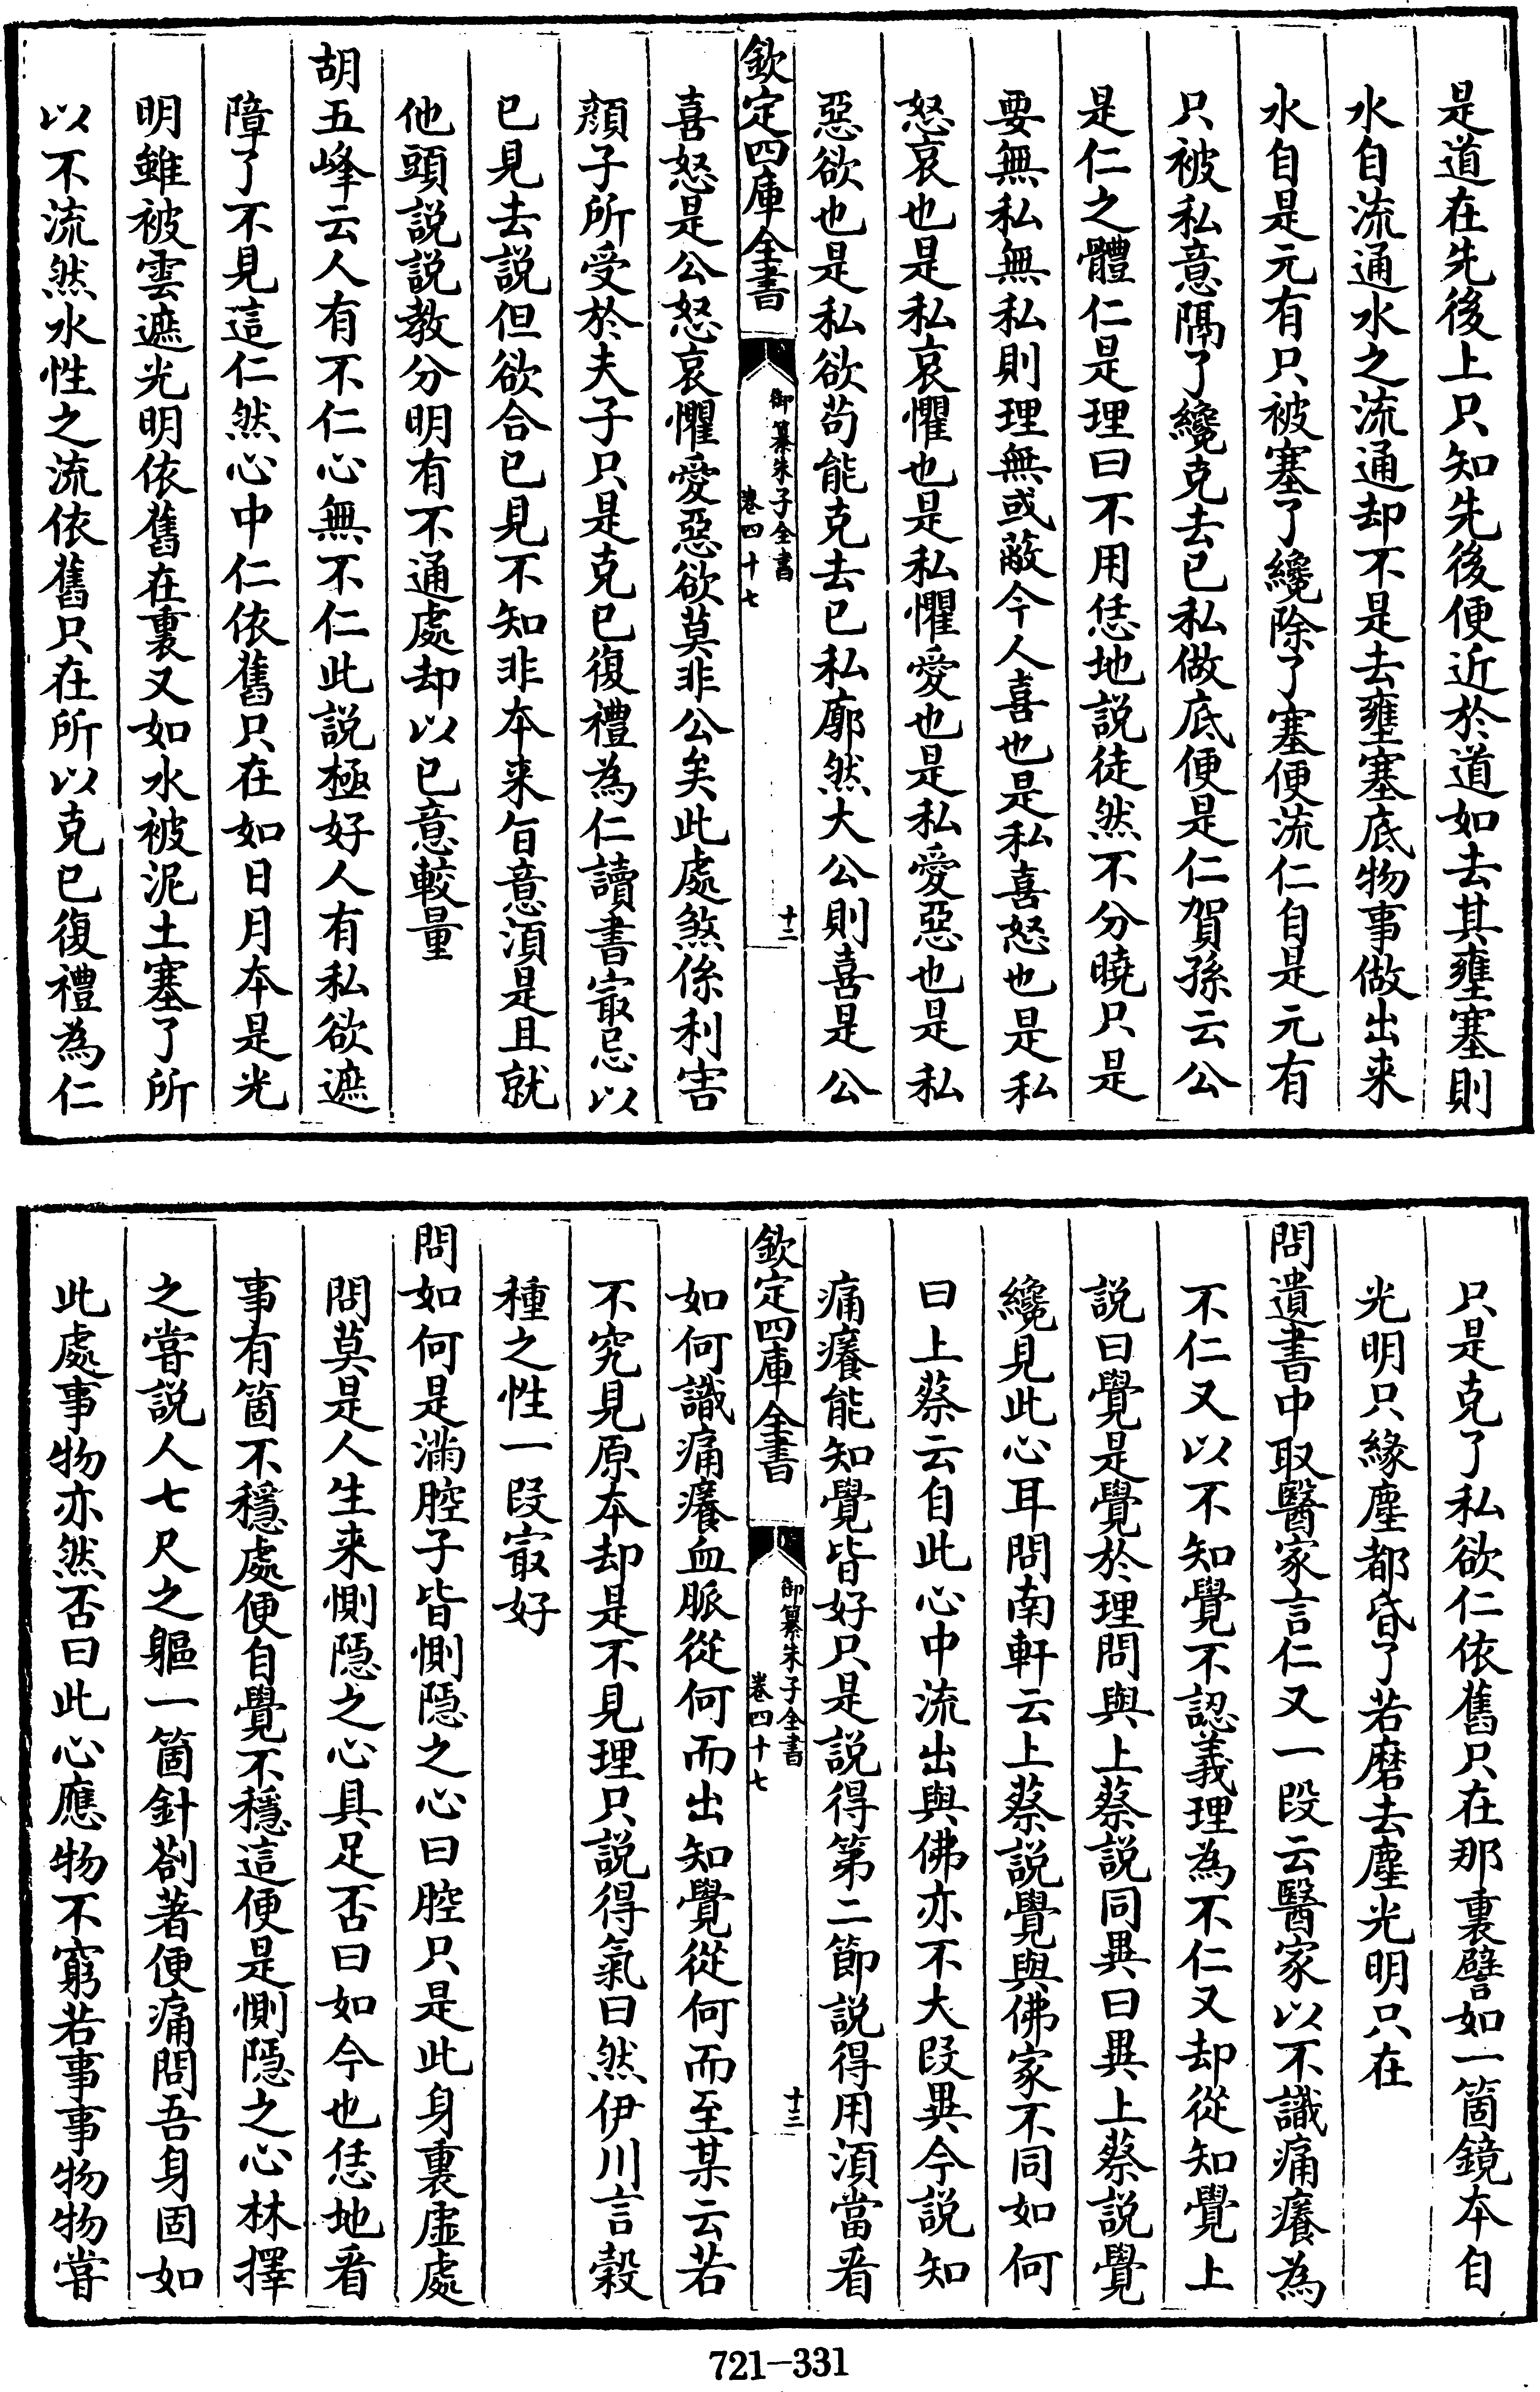 是道在先後上只知先後便近於道如去其壅塞則
水自流通水之流通却不是去壅塞底物事做出来
水自是元有只被塞了纔除了塞便流仁自是元有
只被私意隔了纔克去已私做底便是仁賀孫云公
是仁之體仁是理曰不用恁地説徒然不分曉只是
要無私無私則理無或蔽今人喜也是私喜怒也是私
怒哀也是私哀懼也是私懼愛也是私愛惡也是私
惡欲也是私欲苟能克去已私廓然大公則喜是公
欽定四庫全書
御纂朱子全書
卷四十七
十二
喜怒是公怒哀懼愛惡欲莫非公矣此處煞係利害
顔子所受於夫子只是克已復禮為仁讀書㝡忌以
已見去説但欲合已見不知非本来㫖意湏是且就
他頭説説教分明有不通處却以已意較量
胡五峰云人有不仁心無不仁此説極好人有私欲遮
障了不見這仁然心中仁依舊只在如日月本是光
明雖被雲遮光明依舊在裏又如水被泥土塞了所
以不流然水性之流依舊只在所以克已復禮為仁
只是克了私欲仁依舊只在那裏譬如一箇鏡本自
光明只緣塵都昏了若磨去塵光明只在
問遺書中取醫家言仁又一段云醫家以不識痛癢為
不仁又以不知覺不認義理為不仁又却從知覺上
説曰覺是覺於理問與上蔡説同異曰異上蔡説覺
纔見此心耳問南軒云上蔡説覺與佛家不同如何
曰上蔡云自此心中流出與佛亦不大段異今説知
痛癢能知覺皆好只是説得第二節説得用湏當看
欽定四庫全書
御纂朱子全書
卷四十七
十三
如何識痛癢血脈從何而出知覺從何而至某云若
不究見原本却是不見理只説得氣曰然伊川言穀
種之性一段㝡好
問如何是滿腔子皆惻隠之心曰腔只是此身裏虛處
問莫是人生来惻隠之心具足否曰如今也恁地看
事有箇不穩處便自覺不穩這便是惻隠之心林擇
之嘗説人七尺之軀一箇針劄著便痛問吾身固如
此處事物亦然否曰此心應物不窮若事事物物嘗
721-331